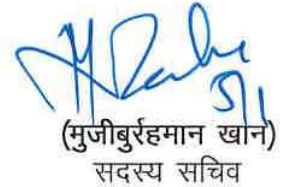 5/1
(मुजीबुर्रहमान खान)
सदस्य सचिव